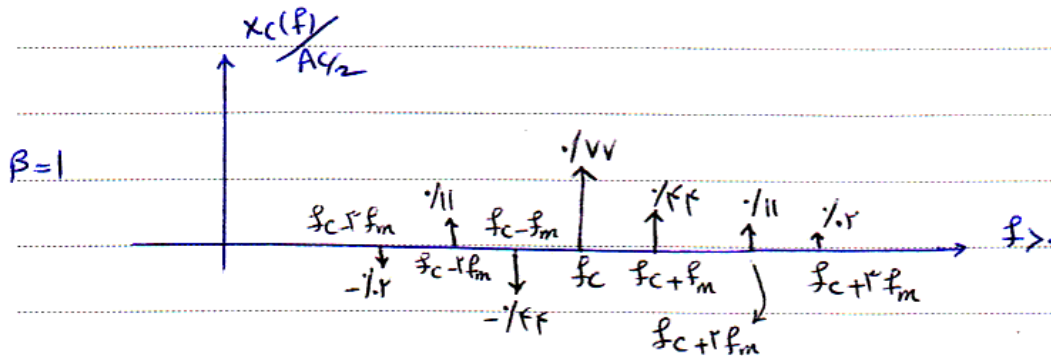 Xc(f)/Ac/2
β=1
۰/۷۷
۰/۱۱
۰/۴۴
۰/۱۱
۰/۰۲
fc-۳fm
fc-fm
f>۰
-۰/۰۲
fc-۲fm
fc
fc+fm
fc+۳fm
-۰/۴۴
fc+۲fm